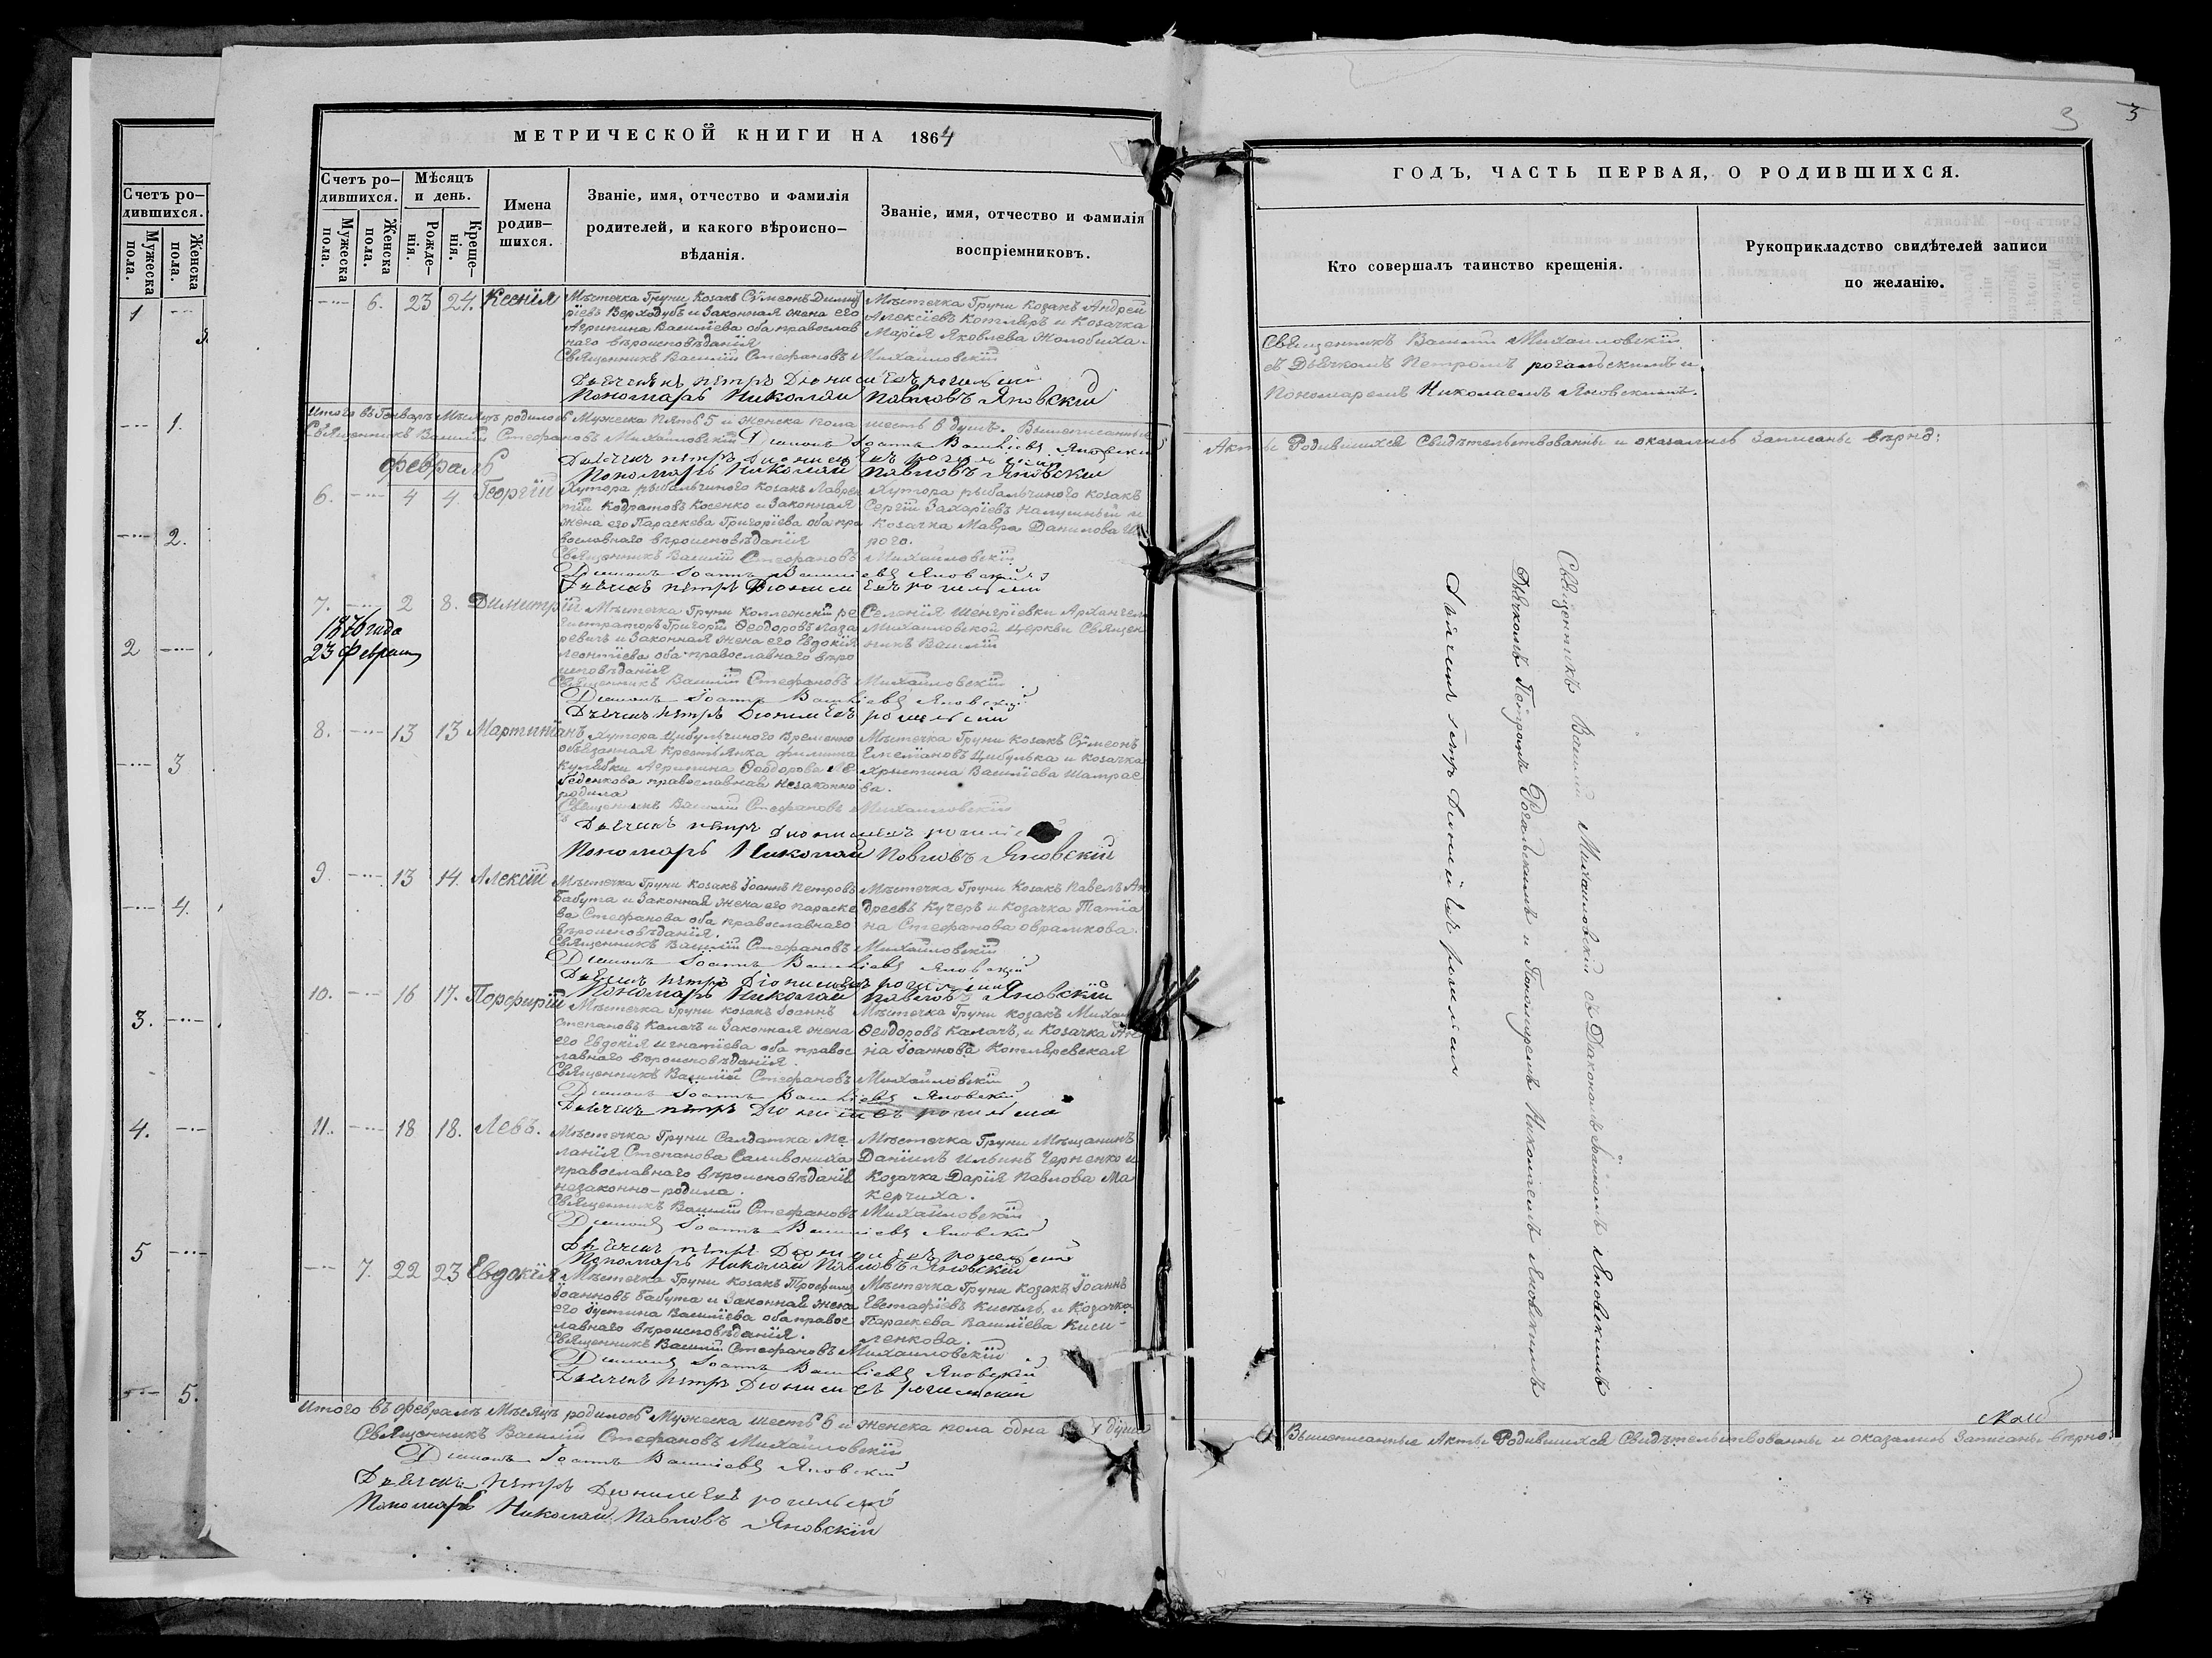 МЕТРИЧЕСКОЙ КНИГИ НА 1864
Счетъ ро-
дившихся.
Мужеска
пола.
Женска
пола.
Мѣсяцъ
и день.
Рожде-
нія.
Креще-
нія.
Имена
родив-
шихся.
Званіе, имя, отчество и фамилія
родителей, и какого вѣроиспо-
вѣданія.
Званіе, имя, отчество и фамилія
воспріемниковъ.
6. 23 24. Ксенія
Мѣстечка Груни Козакъ Сѵмеонъ Димит
ріевъ Верходубъ и Законная жена его
Агрипина Василіева оба православ
наго вѣроисповѣданія
Мѣстечка Груни Козакъ Андрей
Алексіевъ Котляръ и Козачка
Марія Яковлева Жолобиха.
Священникъ Василій Стефановъ Михайловскій
Дьячекъ Петръ Діонисіевъ Рогальскій
Пономарь Николай Павловъ Яновскій
Итого въ Генварѣ Мѣсяцѣ родилось Мужеска пять 5 и женска пола шесть 6 душъ. Вышеписанные
Священникъ Василій Стефановъ Михайловскій Діаконъ Іоаннъ Василіевъ Яновскій
Дьячекъ Петръ Діонисіевъ Рогальскій
Пономарь Николай Павловъ Яновскій
февраль
6. 4 4. Георгій
Хутора Рыбальчиного Козакъ Лаврен
тій Кодратовъ Косенко и Законная
жена его Параскева Григоріева оба пра
вославнаго вѣроисповѣданія
Хутора Рыбальчиного Козакъ
Сергій Захаріевъ и
Козачка Мавра Данилова
рого.
Священникъ Василій Стефановъ Михайловскій
Діаконъ Іоаннъ Василіевъ Яновскій
Дьячекъ Петръ Діонисіевъ Рогальскій
7. 2 8. Димитрій
1870 года
23 Февраля
Мѣстечка Груни Коллежскій ре
гистраторъ Григорій Ѳеодоровъ Лаза
ревичъ и Законная жена его Евдокія
Леонтіева оба православнаго вѣро
исповѣданія
Селенія Шенгріевки Архангело
Михайловской церкви Священ
никъ Василій
Священникъ Василій Стефановъ Михайловскій
Діаконъ Іоаннъ Василіевъ Яновскій
Дьячекъ Петръ Діонисіевъ Рогальскій
8. 13 13 Мартиніанъ
Хутора Цибульчиного Временно
обязанная Крестьянка Филиппа
Кулябки Агрипина Ѳеодорова Ле
беденкова православная незаконно
родила
Мѣстечка Груни Козакъ Сѵмеонъ
Емельяновъ Цибулька и Козачка
Христина Василіева Шапрає
ва.
Священникъ Василій Стефановъ Михайловскій
Дьячекъ Петръ Діонисіевъ
Пономарь Николай Павловъ Яновскій
9. 13 14. Алексій
Мѣстечка Груни Козакъ Іоаннъ Петровъ
Бабута и Законная жена его Параске
ва Стефанова оба православнаго
вѣроисповѣданія.
Мѣстечка Груни Козакъ Павелъ Ан
дреевъ Кучеръ и Козачка Татіа
на Стефанова Аврамкова.
Священникъ Василій Стефановъ Михайловскій
Діаконъ Іоаннъ Василіевъ Яновскій
Дьячекъ Петръ Діонисіевъ Рогальскій
Пономарь Николай Павловъ Яновскій
10. 16 17. Порфирій
Мѣстечка Груни Козакъ Іоаннъ
Степановъ Калачъ и Законная жена
его Евдокія Игнатіева оба правос
лавнаго вѣроисповѣданія.
Мѣстечка Груни Козакъ Михаилъ
Ѳеодоровъ Калачъ, и Козачка Ан
на Іоаннова Котляревская
Священникъ Василій Стефановъ Михайловскій
Діаконъ Іоаннъ Василіевъ Яновскій
Дьячекъ Петръ Діонисіевъ Рогальскій
11. 18 18. Левъ.
Мѣстечка Груни Салдатка Ме
ланія Степанова Саливониха
православнаго вѣроисповѣданія
незаконно-родила.
Мѣстечка Груни Мѣщанинъ
Даніилъ Ильинъ Черненко и
Козачка Дарія Павлова Ма
керчиха.
Священникъ Василій Стефановъ Михайловскій
Діаконъ Іоаннъ Василіевъ Яновскій
Дьячекъ Петръ Діонисіевъ Рогальскій
Пономарь Николай Павловъ Яновскій
7. 22 23 Евдокія
Мѣстечка Груни Козакъ Трофимъ
Іоанновъ Бабута и Законная жена
его Іустина Василіева оба правос
лавнаго вѣроисповѣданія.
Мѣстечка Груни Козакъ Іоаннъ
Евстафіевъ Кисѣль, и Козачка
Параскева Василіева Киси-
ленкова.
Священникъ Василій Стефановъ Михайловскій
Діаконъ Іоаннъ Василіевъ Яновскій
Дьячекъ Петръ Діонисіевъ Рогальскій
Итого въ февралѣ Мѣсяцѣ родилось Мужеска шесть 6 и женска пола одна 1 душа
Священникъ Василій Стефановъ Михайловскій
Діаконъ Іоаннъ Василіевъ Яновскій
Дьячекъ Петръ Діонисіевъ Рогальскій
Пономарь Николай Павловъ Яновскій
Счетъ ро-
дившихся.
Мужеска
пола.
Женска
пола.
1
1.
2.
2
3
4.
3.
4.
5
5.
3 3
ГОДЪ, ЧАСТЬ ПЕРВАЯ, О РОДИВШИХСЯ.
Кто совершалъ таинство крещенія.
Рукоприкладство свидѣтелей записи
по желанію.
Священникъ Василій Михайловскій
съ Дьячкомъ Петромъ Рогальскимъ и
Пономаремъ Николаемъ Яновскимъ.
Акты Родившихся Свидѣтельствованны и оказались Записаны вѣрно:
Священникъ Василій Михайловскій съ Діакономъ Іоанномъ Яновскимъ
Дьячкомъ Петромъ Рогальскимъ и Пономаремъ Николаемъ Яновскимъ
Дьячекъ Петръ Діонисіевъ Рогальскій
Вышеписанные Акты Родившихся Свидѣтельствованны и оказались Записаны вѣрно: